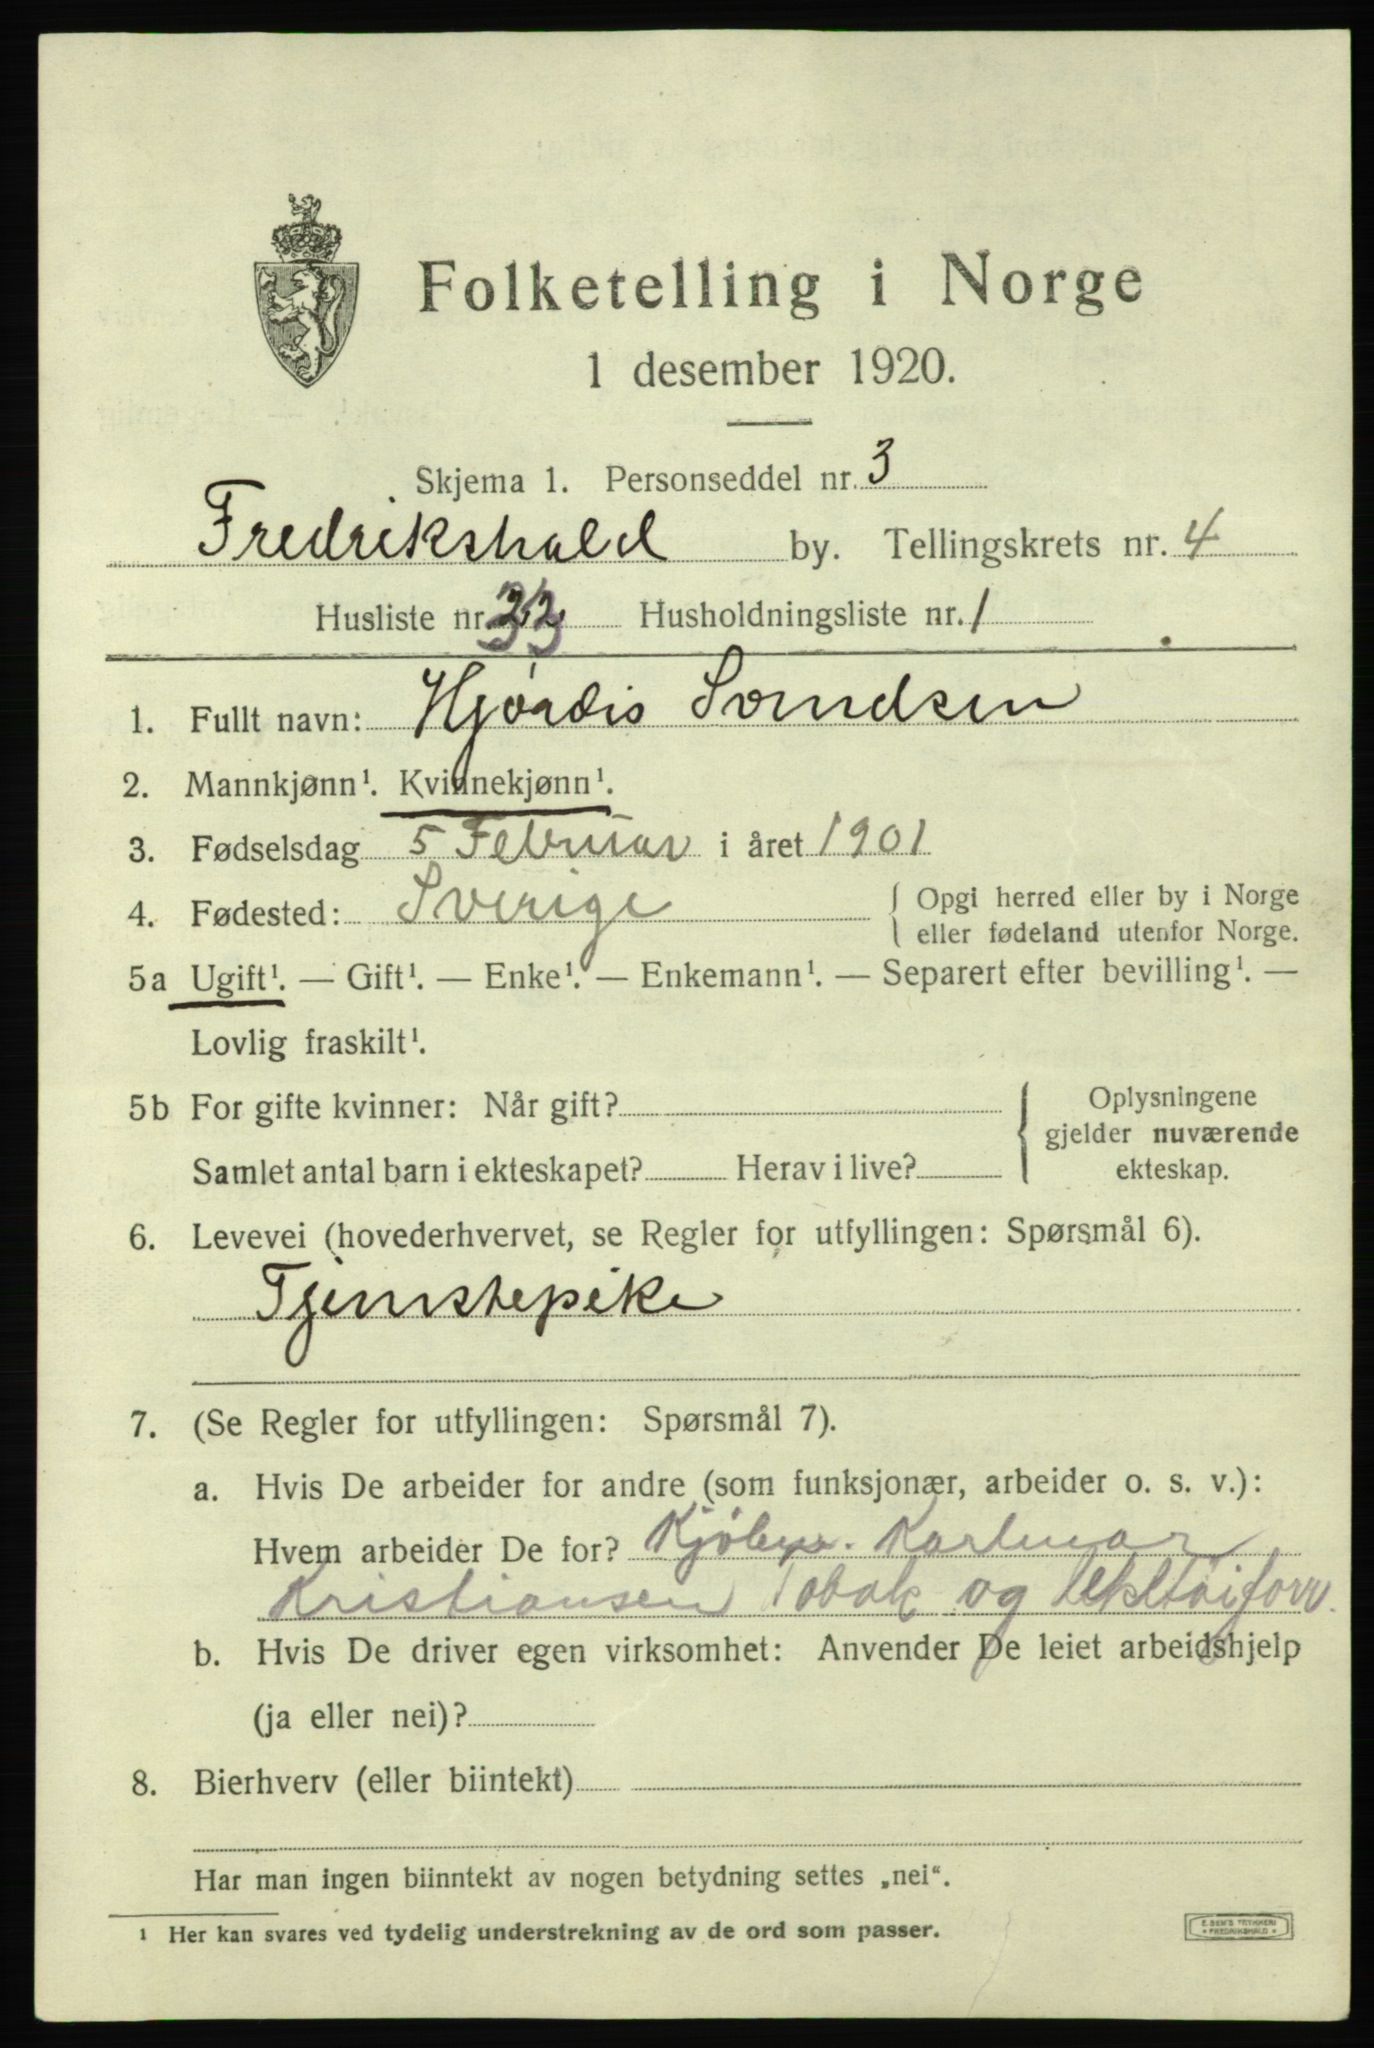 Folketelling i Norge
1 desember 1920.
Skjema 1. Personseddel nr. 3
Fredrikshald by. Tellingskrets nr. 4
Husliste nr. 33 Husholdningsliste nr. 1
1. Fullt navn: Hjördis Svendsen
2. Mannkjønn¹. Kvinnekjønn¹.
3. Fødselsdag 5 Februar i året 1901
4. Fødested: Sverige { Opgi herred eller by i Norge
eller fødeland utenfor Norge.
5a Ugift¹. — Gift¹. — Enke¹. — Enkemann¹. — Separert efter bevilling¹. —
Lovlig fraskilt¹.
5b For gifte kvinner: Når gift? { Oplysningene
gjelder nuværende
ekteskap.
Samlet antal barn i ekteskapet? Herav i live?
6. Levevei (hovederhvervet, se Regler for utfyllingen: Spørsmål 6).
Tjenestepike
7. (Se Regler for utfyllingen: Spørsmål 7).
a. Hvis De arbeider for andre (som funksjonær, arbeider o. s. v.):
Hvem arbeider De for? Kjöbm. Karlmar
Kristiansen Tobak og
b. Hvis De driver egen virksomhet: Anvender De leiet arbeidshjelp
(ja eller nei)?
8. Bierhverv (eller biintekt)
Har man ingen biinntekt av nogen betydning settes „nei“.
¹ Her kan svares ved tydelig understrekning av de ord som passer.
E. SEM'S TRYKKERI
FREDRIKSHALD